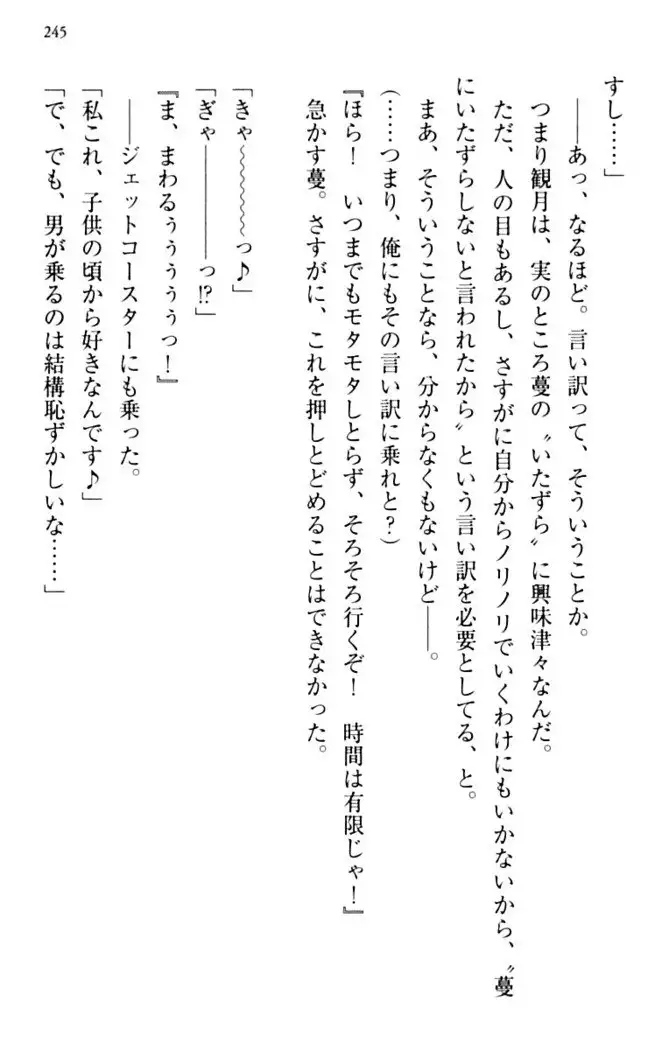 245
すし……」
――あっ、なるほど。言い訳って、そういうことか。
つまり観月は、実のところ蔓の〝いたずら〟に興味津々なんだ。
ただ、人の目もあるし、さすがに自分からノリノリでいくわけにもいかないから、〝蔓
にいたずらしないと言われたから〟という言い訳を必要としてる、と。
まあ、そういうことなら、分からなくもないけど――。
(……つまり、俺にもその言い訳に乗れと?)
『ほら! いつまでもモタモタしとらず、そろそろ行くぞ! 時間は有限じゃ!』
急かす蔓。さすがに、これを押しとどめることはできなかった。
「きゃ〜〜〜〜〜〜っ♪」
「ぎゃ――――――っ!?」
『ま、まわるぅぅぅぅぅっ!』
――ジェットコースターにも乗った。
「私これ、子供の頃から好きなんです♪」
「で、でも、男が乗るのは結構恥ずかしいな……」